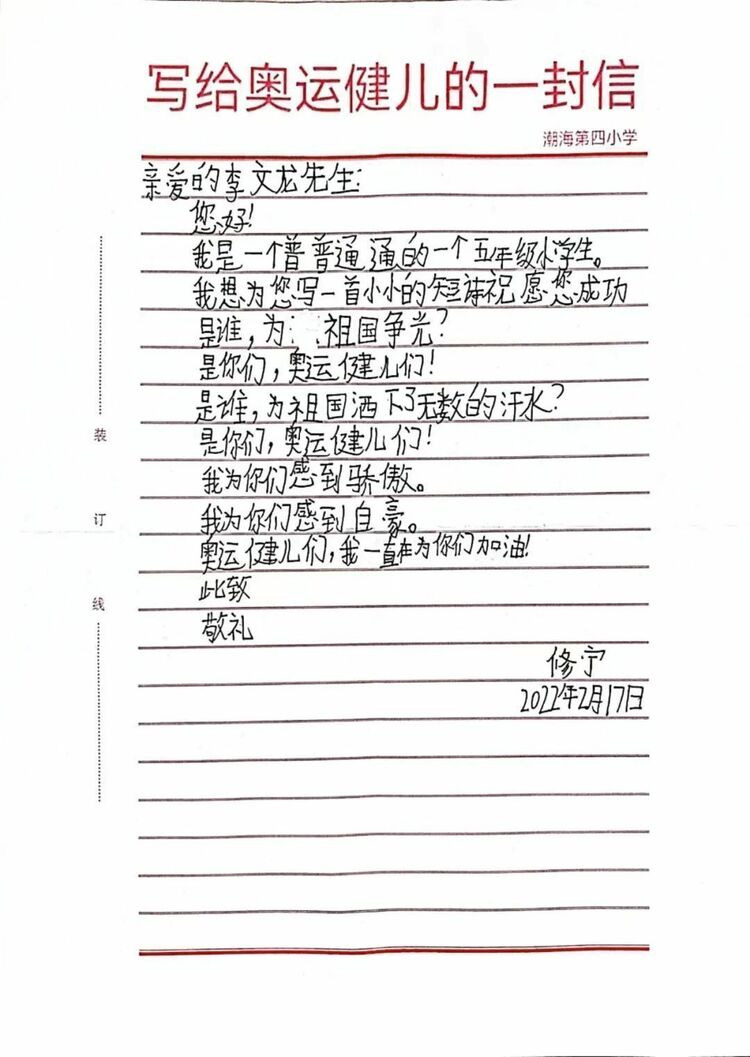 写给奥运健儿的一封信
潮海第四小学
亲爱的李文龙先生:
您好!
我是一个普普通通的一个五年级小学生。
我想为您写一首小小的短诗祝愿您成功
是谁，为祖国争光?
是你们，奥运健儿们!
是谁，为祖国洒下了无数的汗水?
是你们，奥运健儿们!
我为你们感到骄傲。
我为你们感到自豪。
奥运健儿们，我一直在为你们加油!
此致
敬礼
修宁
2022年2月17日
装
订
线